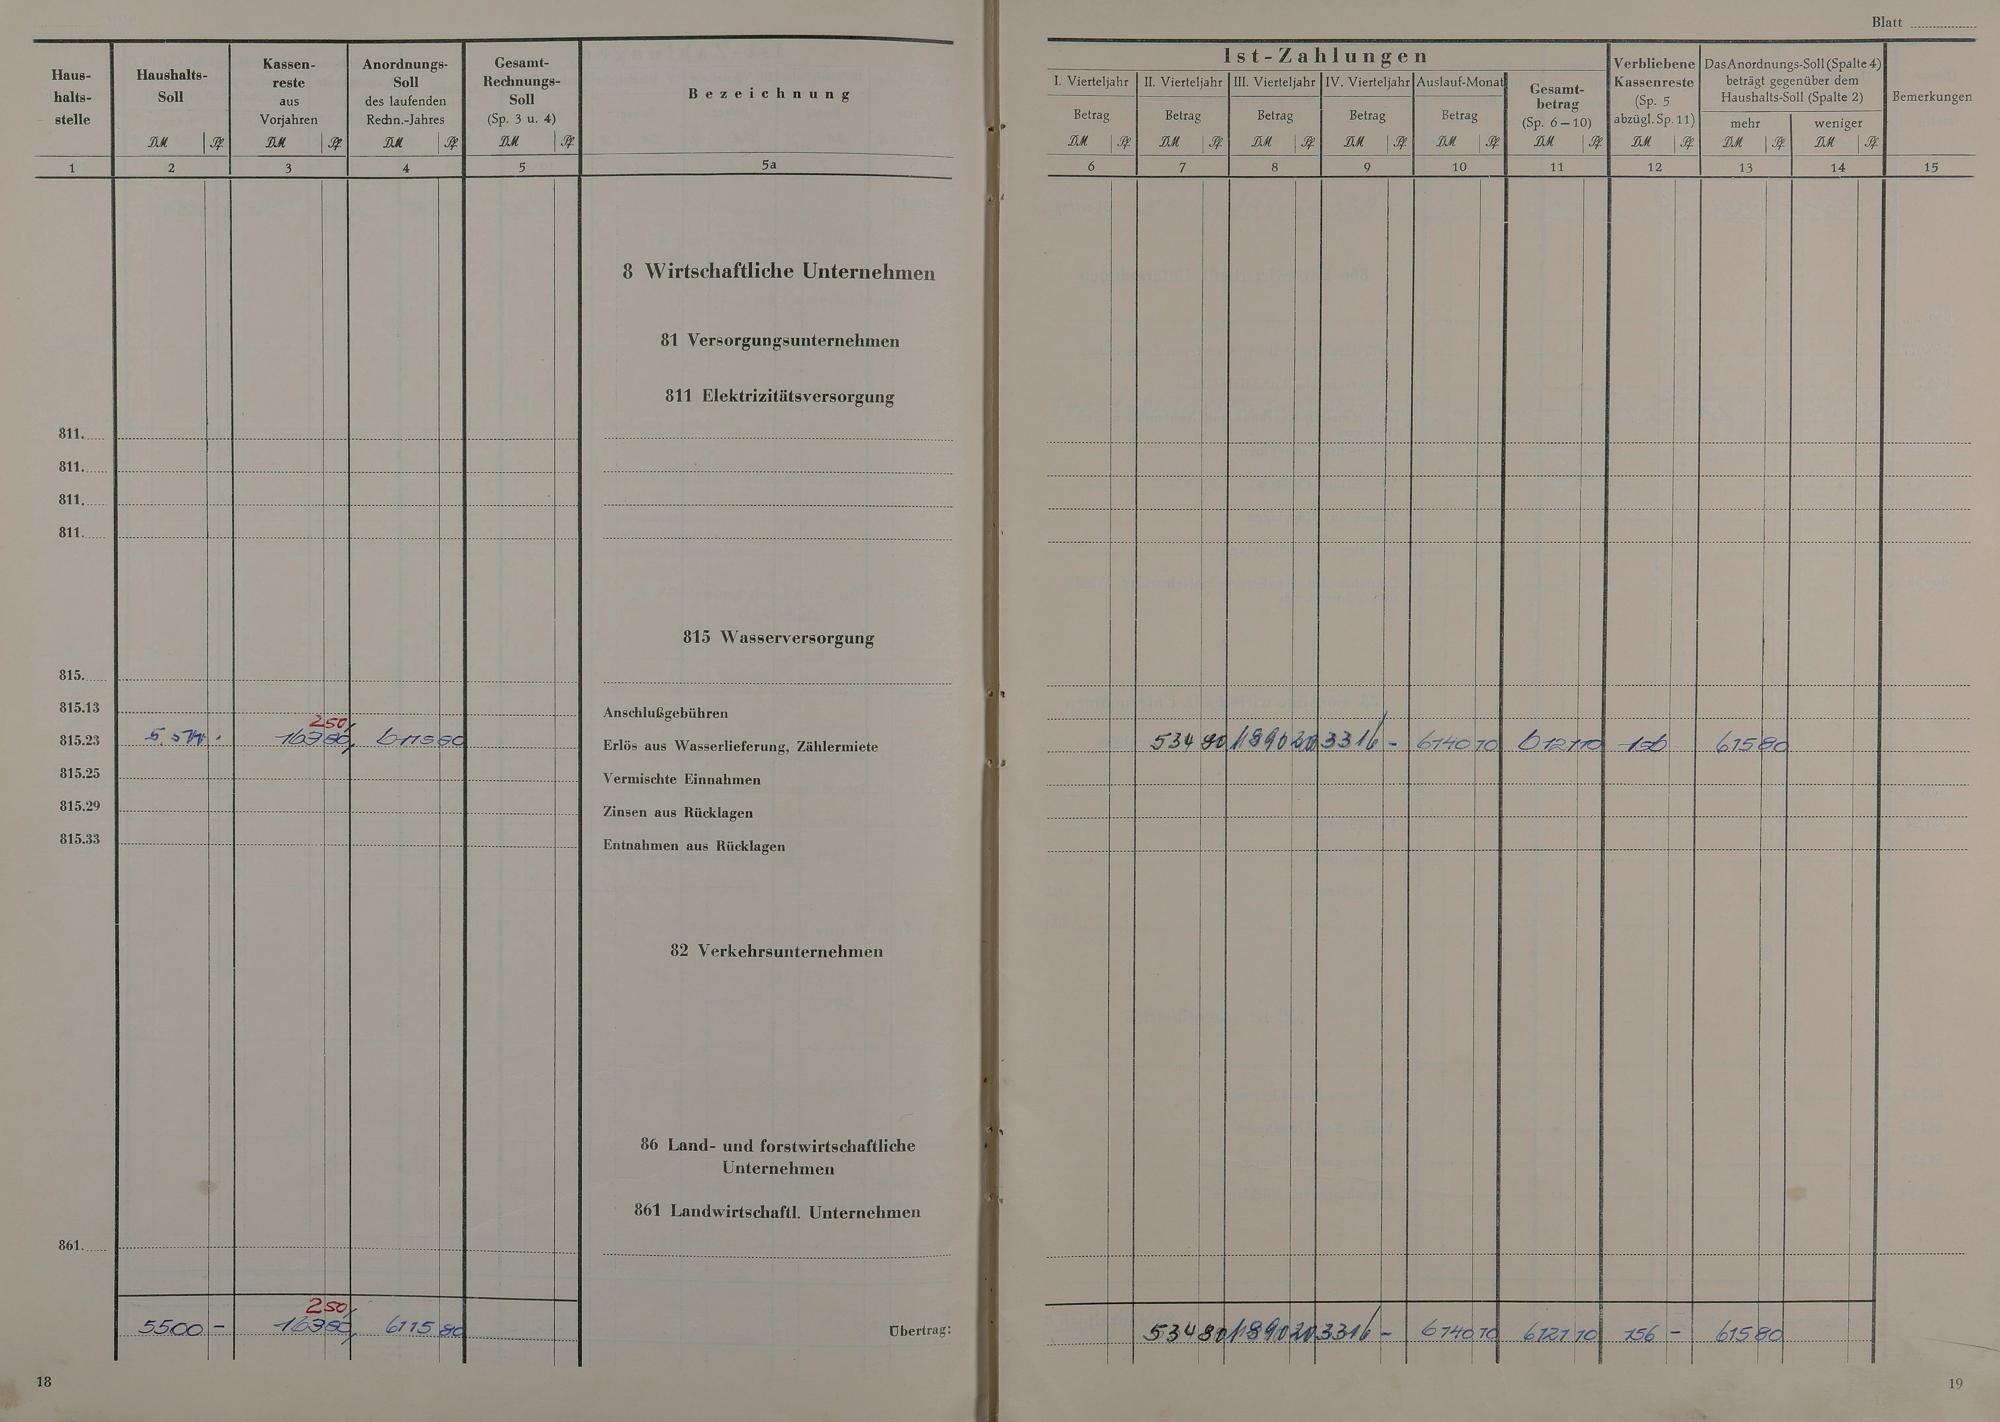 Blatt
Haus-
halts-
stelle
Haushalts-
Soll
Kassen-
reste
aus
Vorjahren
Anordnungs-
Soll
des laufenden
Rechn.-Jahres
Gesamt-
Rechnungs-
Soll
(Sp. 3 u. 4)
Bezeichnung
DM Pf DM Pf DM Pf DM Pf
1 2 3 4 5 5a
8 Wirtschaftliche Unternehmen
81 Versorgungsunternehmen
811 Elektrizitätsversorgung
811.
811.
811.
811.
815 Wasserversorgung
815.
815.13 Anschlußgebühren
250
815.23 163 80 6115 80 Erlös aus Wasserlieferung, Zählermiete
815.25 Vermischte Einnahmen
815.29 Zinsen aus Rücklagen
815.33 Entnahmen aus Rücklagen
82 Verkehrsunternehmen
86 Land- und forstwirtschaftliche
Unternehmen
861 Landwirtschaftl. Unternehmen
861.
250
5500 - 163 80 6115 80 Übertrag:
18
Ist-Zahlungen
I. Vierteljahr II. Vierteljahr III. Vierteljahr IV. Vierteljahr Auslauf-Monat
Betrag Betrag Betrag Betrag Betrag
Gesamt-
betrag
(Sp. 6–10)
Verbliebene
Kassenreste
(Sp. 5
abzügl. Sp. 11)
Das Anordnungs-Soll (Spalte 4)
beträgt gegenüber dem
Haushalts-Soll (Spalte 2)
mehr weniger
Bemerkungen
DM Pf DM Pf DM Pf DM Pf DM Pf DM Pf DM Pf DM Pf DM Pf
6 7 8 9 10 11 12 13 14 15
534 80 1890 20 3316 - 6140 70 156 615 80
534 80 1890 20 3316 - 6140 70 6121 10 156 - 615 80
19